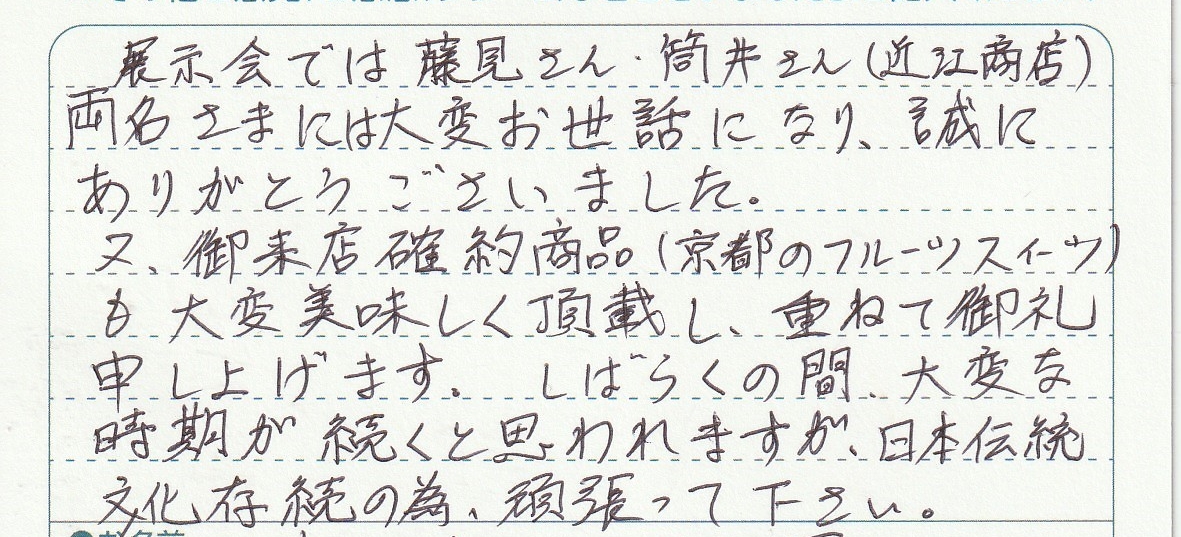 展示会では藤見さん・筒井さん(近江商店)
両名さまには大変お世話になり、誠に
ありがとうございました。
又、御来店確約商品(京都のフルーツスィーツ)
も大変美味しく頂載し、重ねて御礼
申し上げます。 しばらくの間、大変な
時期が続くと思われますが、日本伝統
文化存続の為、頑張って下さい。